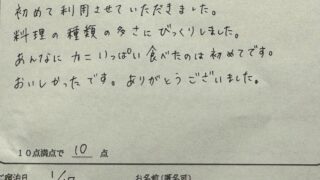 初めて利用させていただきました。
料理の種類の多さにびっくりしました。
あんなにカニいっぱい食べたのは初めてです。
おいしかったです。ありがとうございました。
10点満点で 10 点
ご宿泊日 1/ お名前(匿名可)